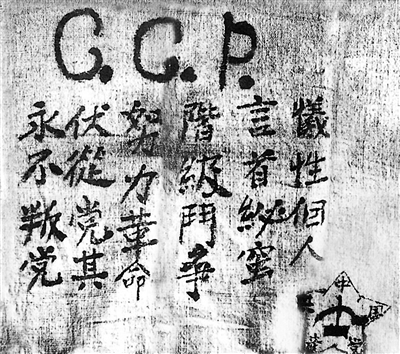 C.C.P.
犧牲個人
言首秘密
階級鬥爭
努力革命
伏從党其
永不叛党
中